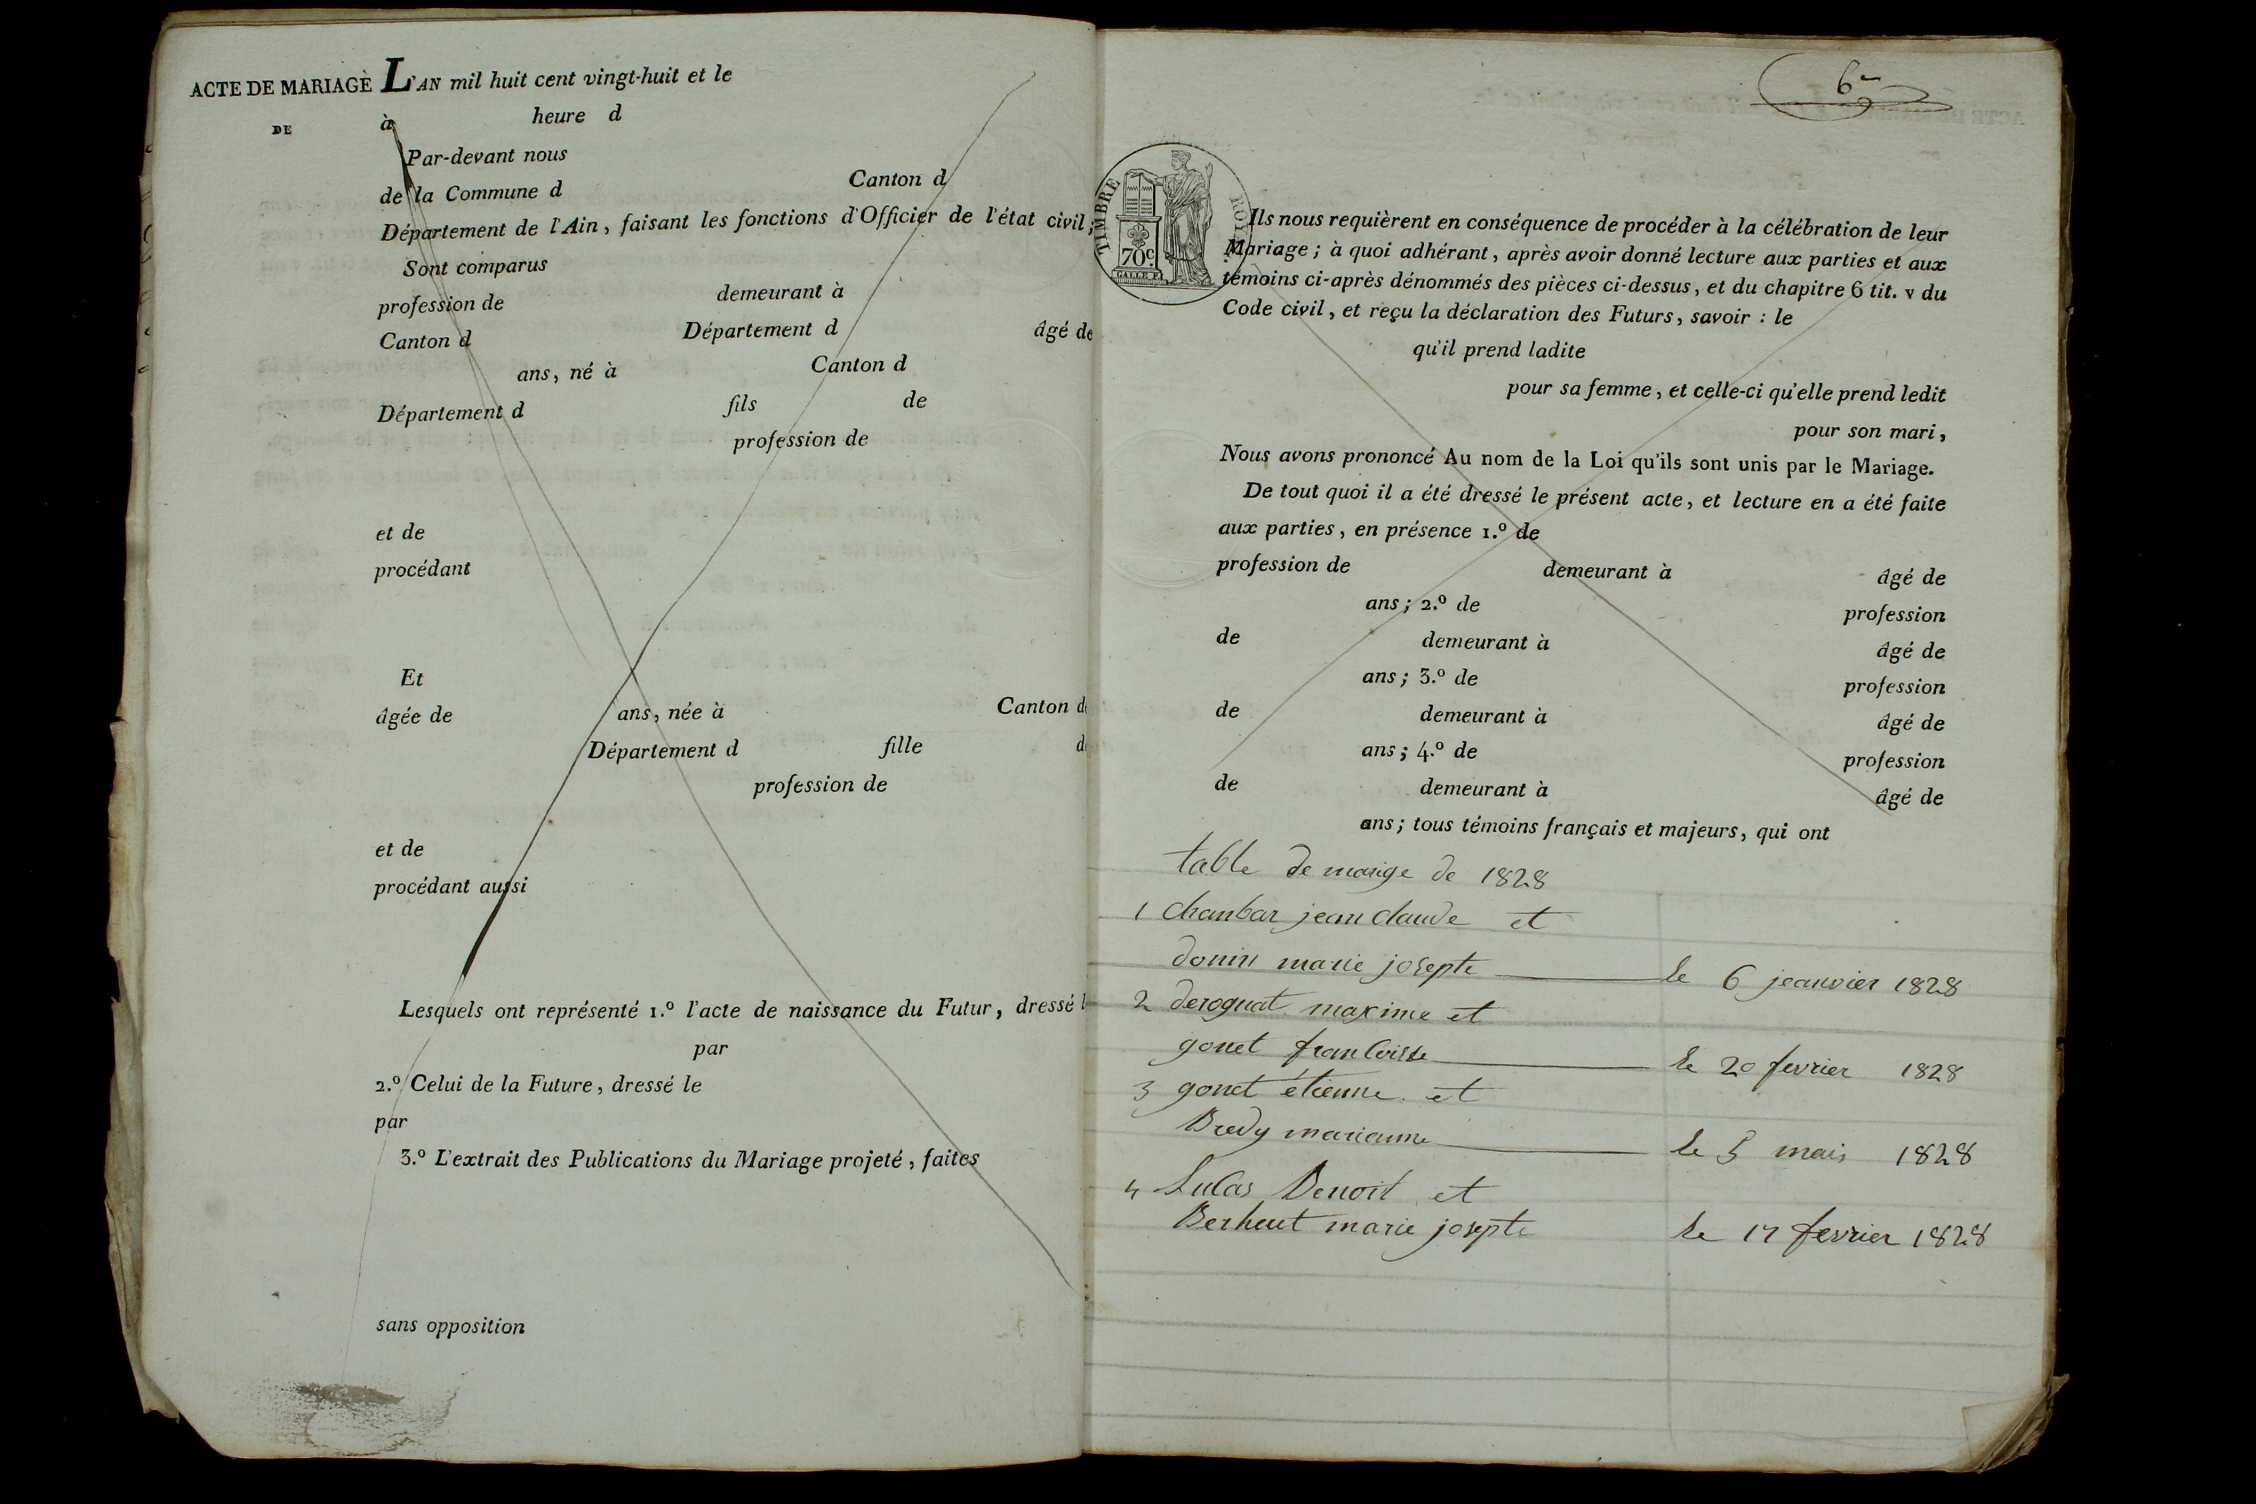 ACTE DE MARIAGE L'AN mil huit cent vingt-huit et le
DE à heure d
Par-devant nous
de la Commune d Canton d
Département de l'Ain, faisant les fonctions d'Officier de l'état civil;
Sont comparus
profession de demeurant à
Canton d Département d âgé de
ans, né à Canton d
Département d fils de
profession de
et de
procédant
Et
âgée de ans, née à Canton d
Département d fille d
profession de
et de
procédant aussi
Lesquels ont représenté 1.º l'acte de naissance du Futur, dressé l
par
2.º Celui de la Future, dressé le
par
3.º L'extrait des Publications du Mariage projeté, faites
sans opposition
6
TIMBRE ROYAL
70c.
Ils nous requièrent en conséquence de procéder à la célébration de leur
Mariage; à quoi adhérant, après avoir donné lecture aux parties et aux
témoins ci-après dénommés des pièces ci-dessus, et du chapitre 6 tit. v du
Code civil, et reçu la déclaration des Futurs, savoir : le
qu'il prend ladite
pour sa femme, et celle-ci qu'elle prend ledit
pour son mari,
Nous avons prononcé Au nom de la Loi qu'ils sont unis par le Mariage.
De tout quoi il a été dressé le présent acte, et lecture en a été faite
aux parties, en présence 1.º de
profession de demeurant à âgé de
ans; 2.º de profession
de demeurant à âgé de
ans; 3.º de profession
de demeurant à âgé de
ans; 4.º de profession
de demeurant à âgé de
ans; tous témoins français et majeurs, qui ont
table de marige de 1828
1 chanbar jean claude et
donin marie josepte le 6 jeanvier 1828
2 derognat maxime et
gonet le 20 fevrier 1828
3 gonet étienne et
Bredy marianne le 5 mais 1828
4 Lulas Benoit et
Berheut marie josepte le 17 fevrier 1828